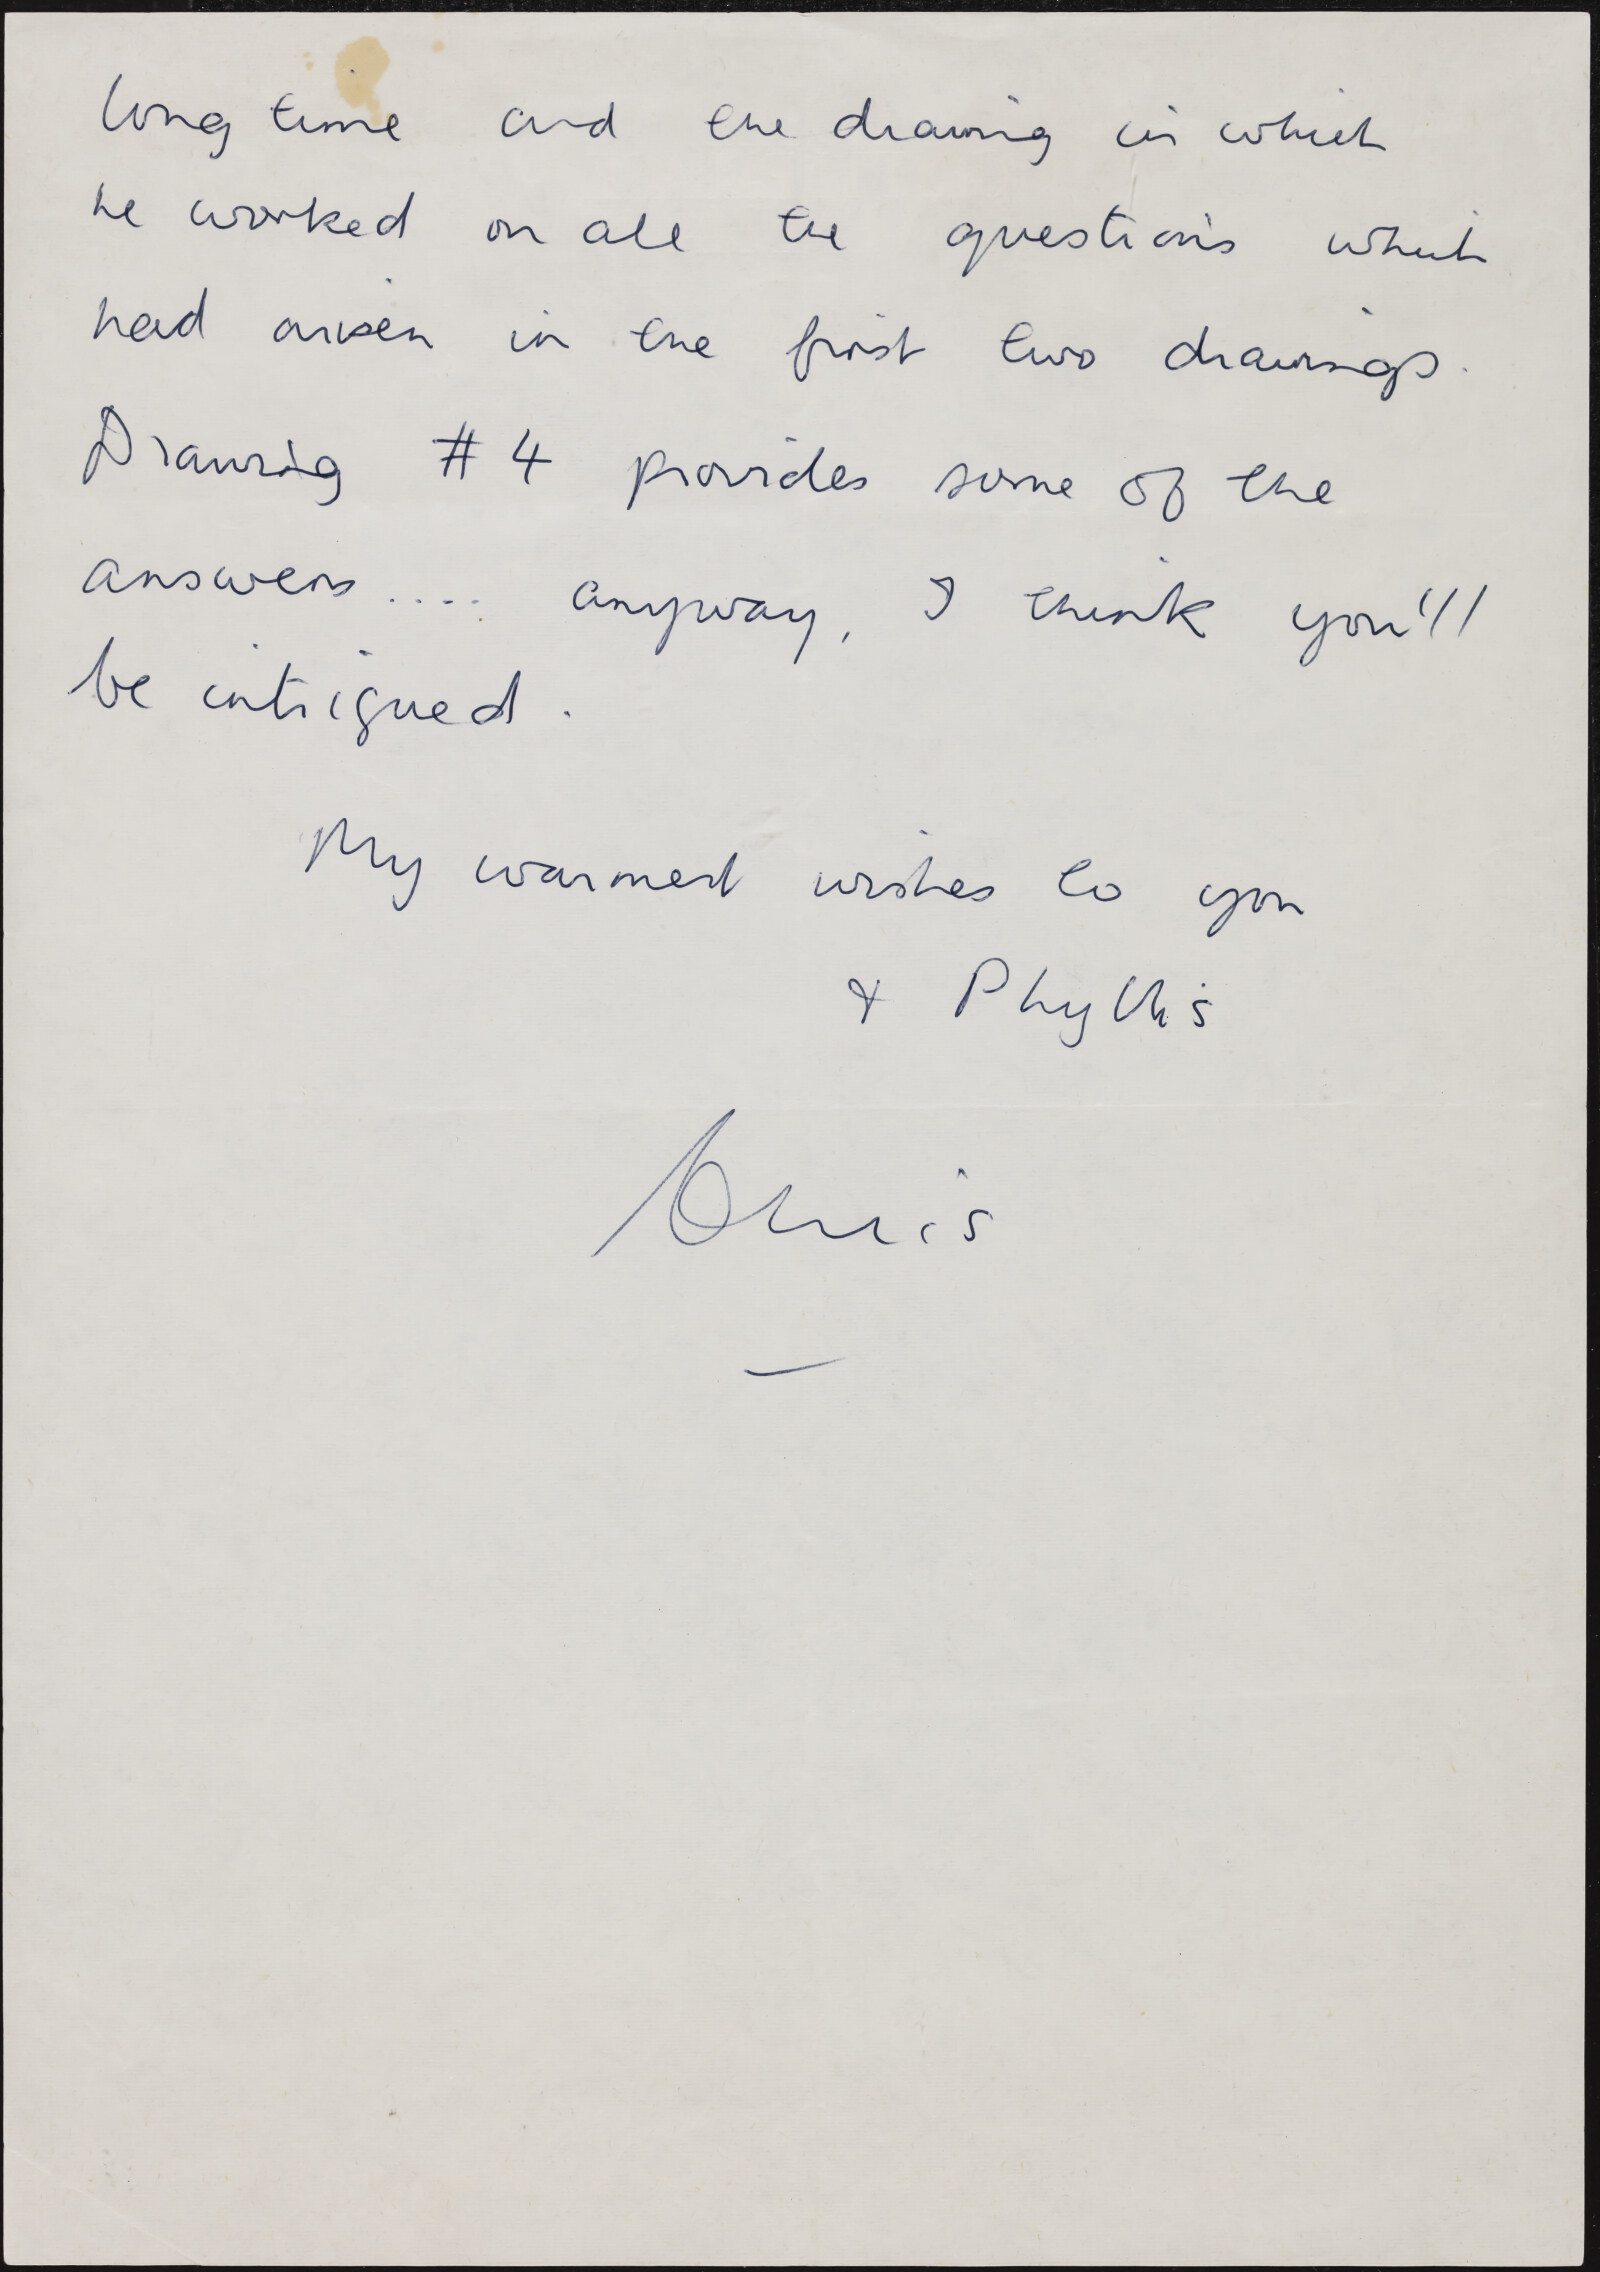 long time and the drawing in which
he worked on all the questions which
had arisen in the first two drawings.
Drawing #4 provides some of the
answers .... anyway, I think you'll
be intrigued.
My warmest wishes to you
& Phyllis
Chris